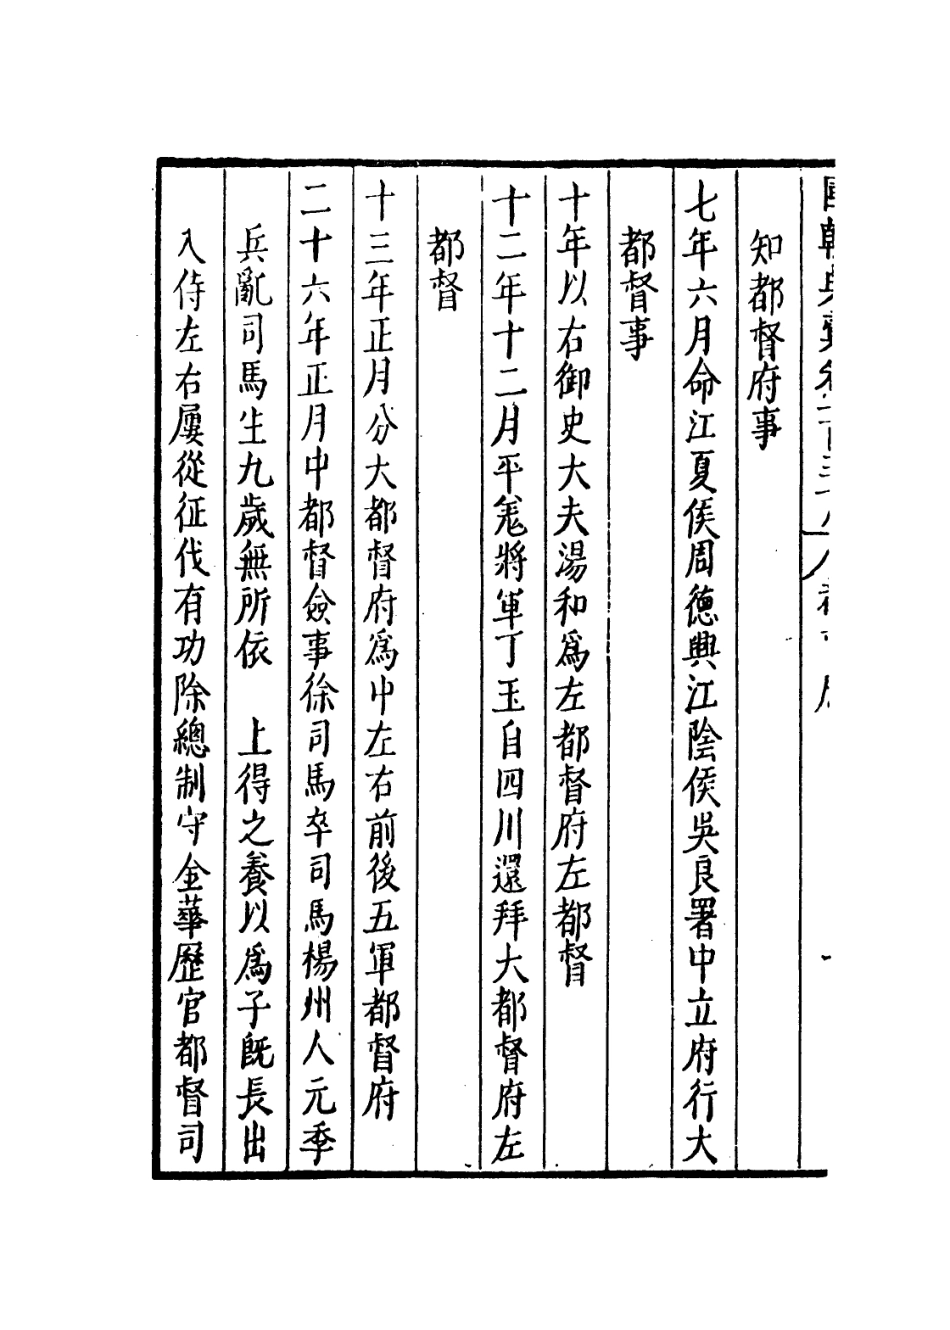 知都督府事
七年六月命江夏侯周德興江陰侯吳良署中立府行大
都督事
十年以右御史大夫湯和爲左都督府左都督
十二年十二月平羌將軍丁玉自四川還拜大都督府左
都督
十三年正月分大都督府爲中左右前後五軍都督府
二十六年正月中都督僉事徐司馬卒司馬楊州人元季
兵亂司馬生九歲無所依　上得之養以爲子旣長出
入侍左右屢從征伐有功除總制守金華歷官都督司